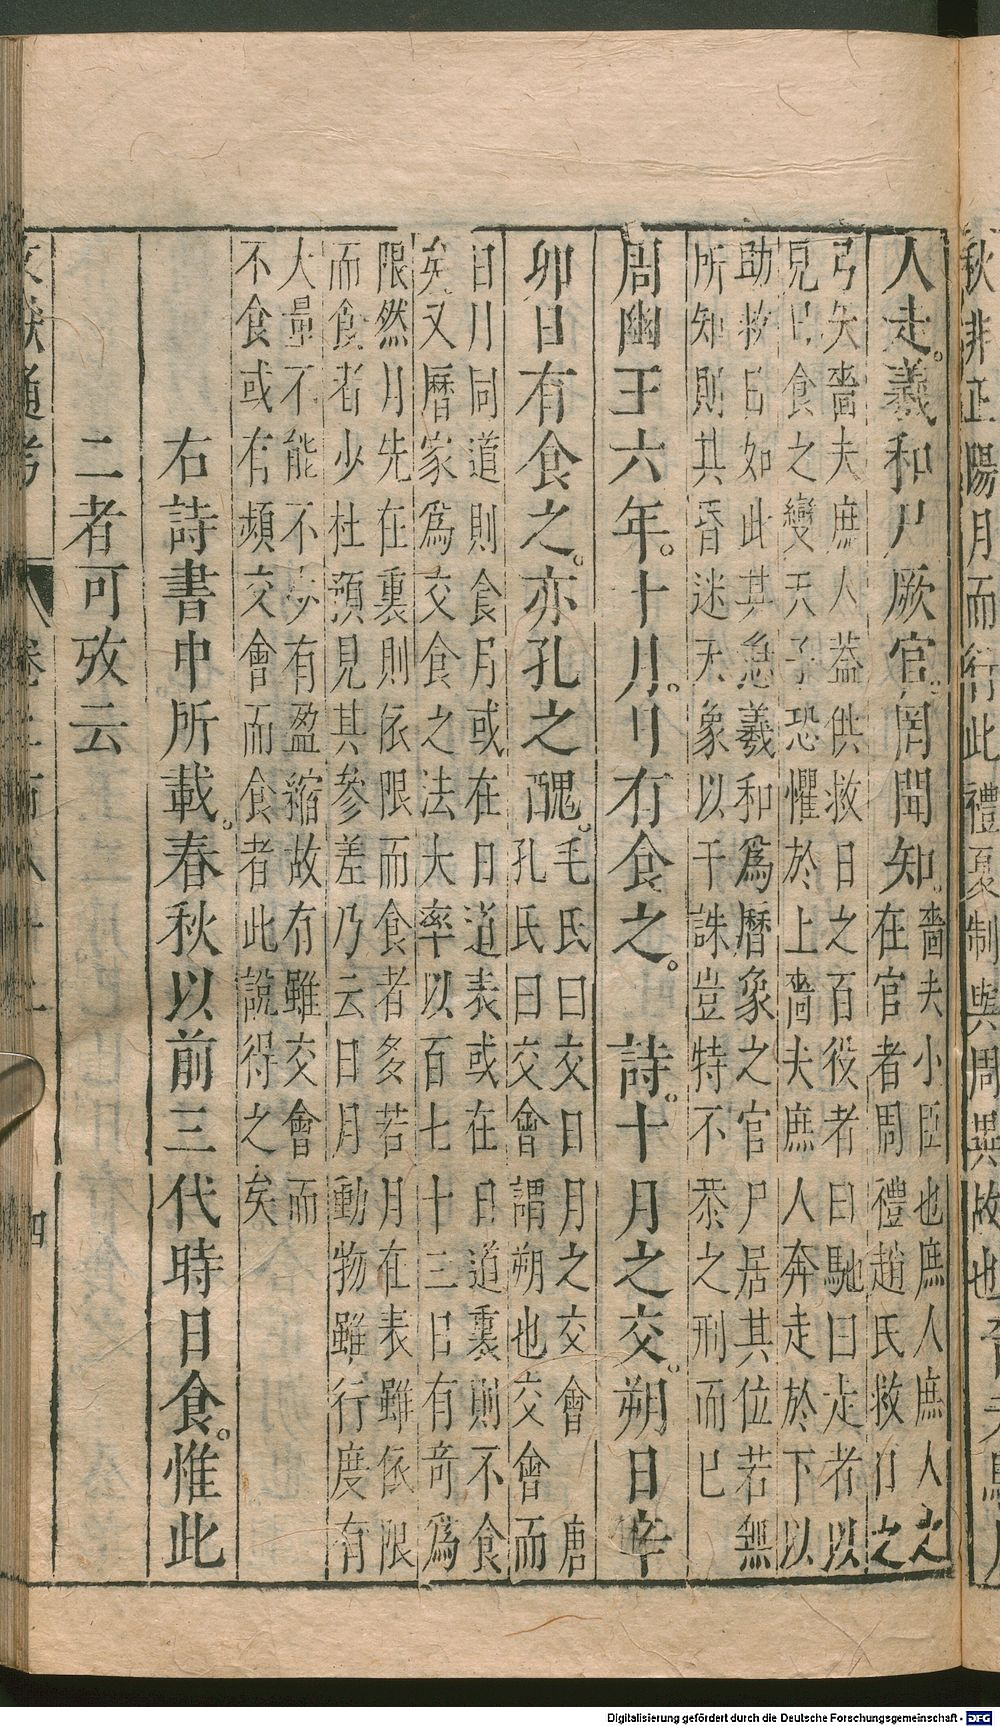 人走。羲和尸厥官。罔聞知。嗇夫小臣也庶人庶人之
在官者周禮趙氏救日之
弓矢嗇夫庶人蓋供救日之百役者曰馳曰走者以
見日食之變天子恐懼於上嗇夫庶人奔走於下以
助救日如此其急羲和為曆象之官尸居其位若無
所知則其昏迷天象以干誅豈特不恭之刑而已
周幽王六年。十月。日有食之。詩。十月之交。朔日辛
卯日有食之。亦孔之醜。毛氏曰交日月之交會 唐
孔氏曰交會謂朔也交會而
日月同道則食月或在日道表或在日道裏則不食
矣又曆家為交食之法大率以百七十三日有奇為
限然月先在裏則依限而食者多若月在表雖依限
而食者少杜預見其參差乃云日月動物雖行度有
大量不能不少有盈縮故有雖交會而
不食或有頻交會而食者此說得之矣
右詩書中所載。春秋以前三代時日食。惟此
二者可攷云
文獻通考 卷二百八十二 四
秋非正陽月而行此禮夏制與周異故也
Digitalisierung gefördert durch die Deutsche Forschungsgemeinschaft - DFG